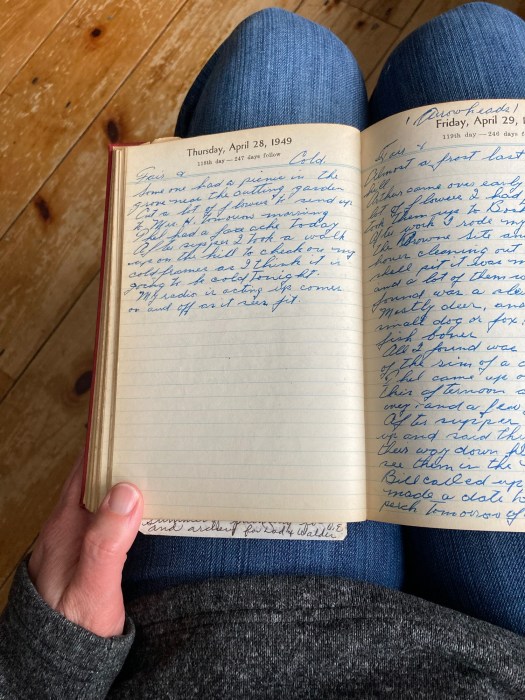 Thursday, April 28, 1949
118th day — 247 days follow
Fair & Cold
Someone had a picnic in the
grove near the cutting garden
Cut a lot of flowers to send up
to Mrs. H. tomorrow morning
had a face ache today
After supper I took a walk
up on the hill to check on my
coldframes as I think it is
going to be cold tonight.
My radio is acting up comes
on and off as it sees fit.
and archery for Lady Walder
Arrowheads!
Friday, April 29, 1
119th day — 246 d
Fair &
Almost a frost last
Arthur came over early
lot of flowers I had
took them up to Bost
After work I rode my
the Browne site an
bones cleaning out
shell pit it was
and a lot of them
found was a
Mostly deer, and
small dog or fox,
fish bones
All I found was
of the rim of a
came up
this afternoon
and a few
After supper
up and said
their way down
see them in the
Bill called up
made a date to
perch tomorrow